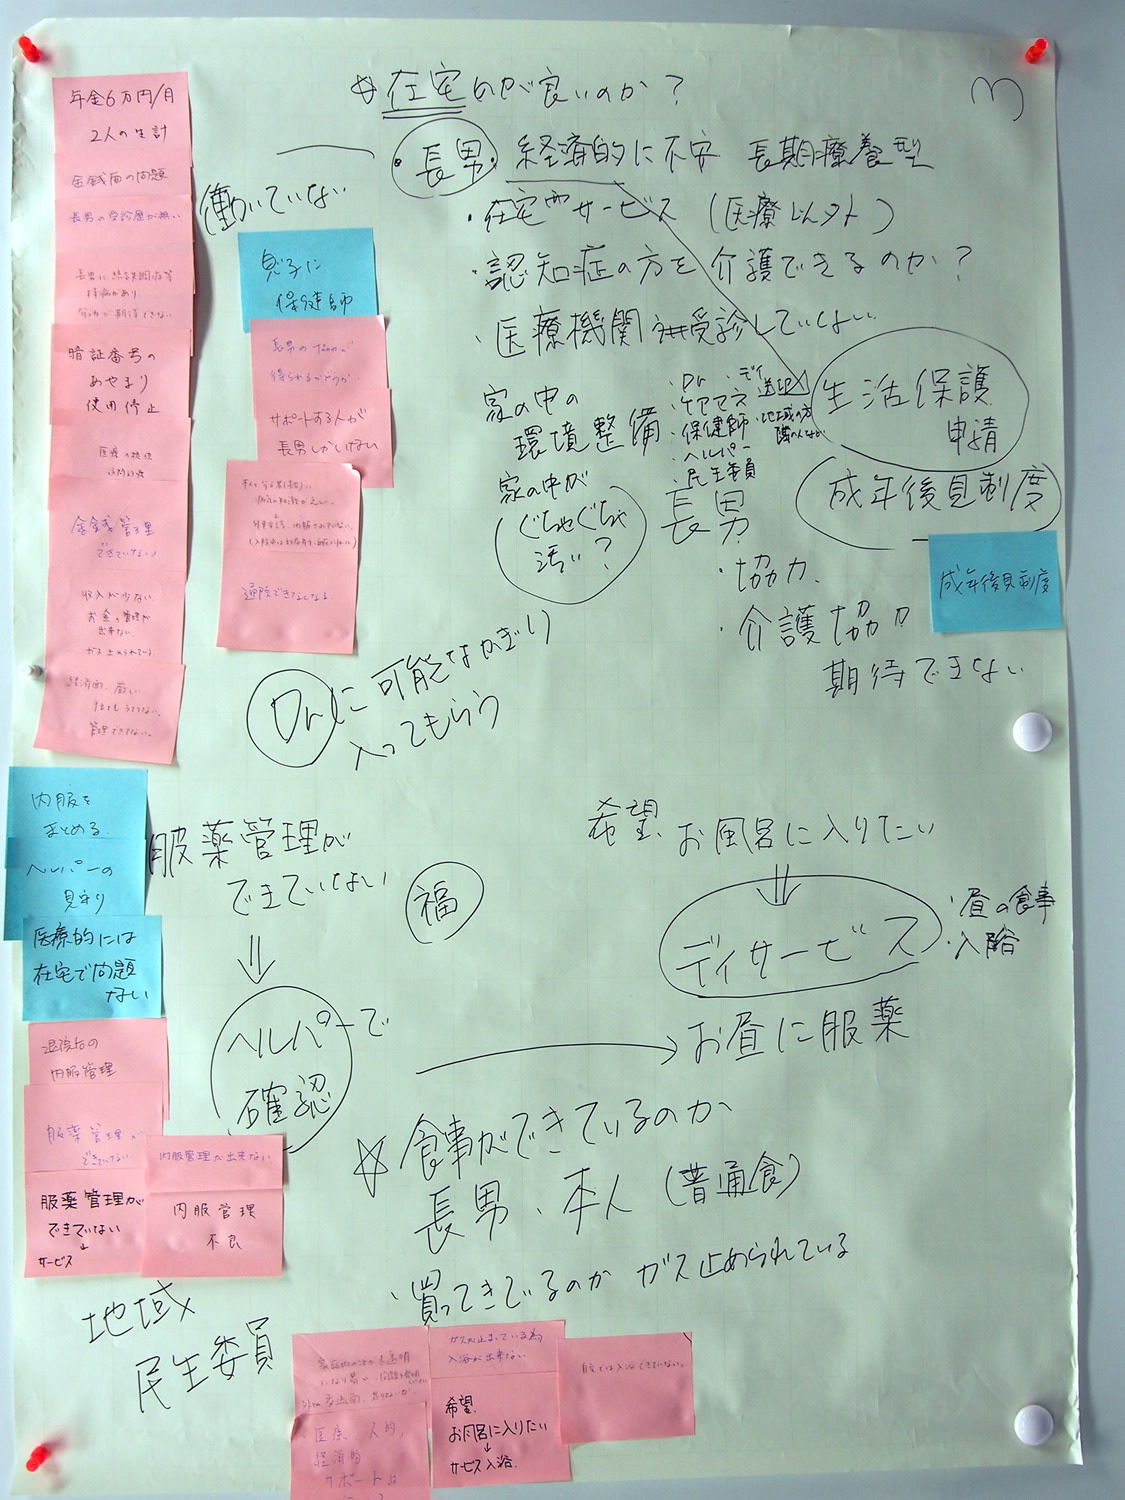 ☆ 在宅のが良いのか？
3
・長男・ 経済的に不安 長期療養型
働いていない
・在宅サービス （医療以外）
・認知症の方を介護できるのか？
・医療機関 受診していない
生活保護
申請
成年後見制度
家の中の
環境整備
家の中が
ぐちゃぐちゃ
汚い？
・Dr ・デイ
・ケアマネ
・保健師
・ヘルパー
・民生委員
送迎
地域の方
長男
・協力、
・介護協力
期待できない
Drに可能なかぎり
入ってもらう
服薬管理が
できていない
⇓
ヘルパーで
確認
福
希望、お風呂に入りたい
⇓
デイサービス
・昼の食事
・入浴
→ お昼に服薬
☆ 食事ができているのか
長男、本人（普通食）
・買ってきているのか ガス止められている
地域
民生委員
年金6万円/月
2人の生計
金銭面の問題
長男の受診歴が無い
暗証番号の
あやまり
使用停止
金銭管理
できていない
収入が少ない
お金の管理が
出来ない
ガス止められている
経済面、厳しい
管理できてない。
息子に
保健師
長男の
得られるかどうか
サポートする人が
長男しかいない
通院できなくなる
成年後見制度
内服を
まとめる
ヘルパーの
見守り
医療的には
在宅で問題
ない
退院后の
内服管理
服薬管理が
できていない
服薬管理が
できていない
↓
サービス
内服管理が出来ない
内服管理
不良
医療、人的、
経済的
サポートは
ガスが止まっている為
入浴が出来ない
希望、
お風呂に入りたい
↓
サービス入浴、
自宅では入浴できていない。